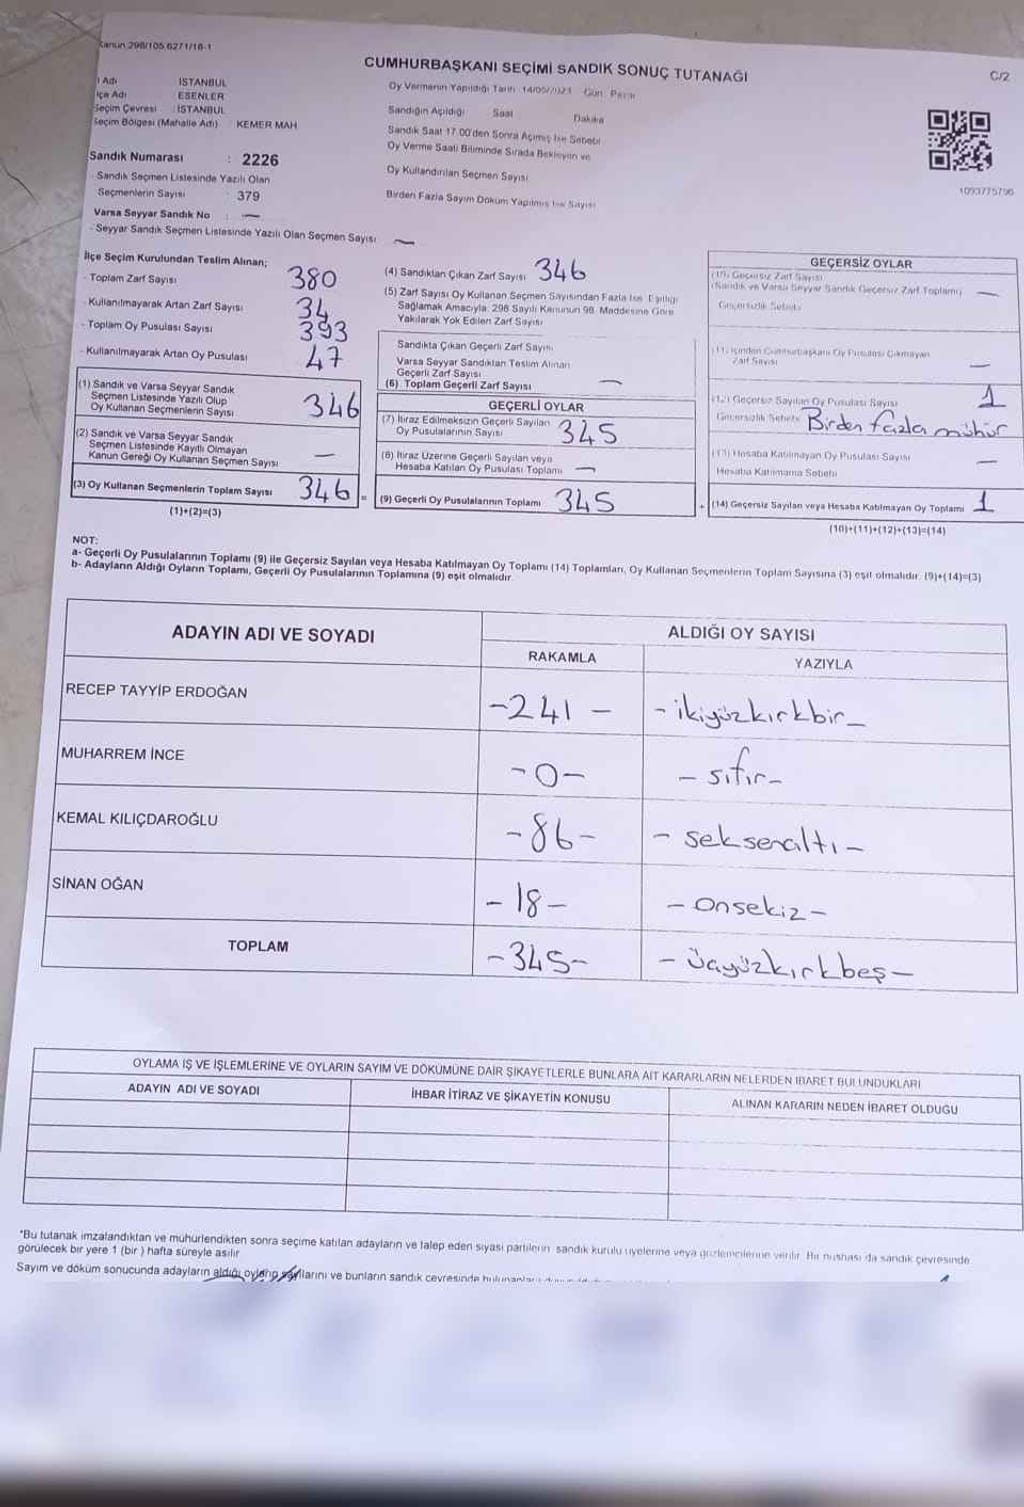 Kanun 298/105 6271/18-1
CUMHURBAŞKANI SEÇİMİ SANDIK SONUÇ TUTANAĞI
C/2
İl Adı İSTANBUL
İlçe Adı ESENLER
Seçim Çevresi İSTANBUL
Seçim Bölgesi (Mahalle Adı) KEMER MAH
Sandık Numarası : 2226
Sandık Seçmen Listesinde Yazılı Olan
Seçmenlerin Sayısı 379
Varsa Seyyar Sandık No : —
Seyyar Sandık Seçmen Listesinde Yazılı Olan Seçmen Sayısı —
Oy Vermenin Yapıldığı Tarih 14/05/2023 Gün Pazar
Sandığın Açıldığı Saat Dakika
Sandık Saat 17.00'den Sonra Açılmış İse Sebebi
Oy Verme Saati Bitiminde Sırada Bekleyen ve
Oy Kullandırılan Seçmen Sayısı
Birden Fazla Sayım Döküm Yapılmış İse Sayısı
1093775796
İlçe Seçim Kurulundan Teslim Alınan;
- Toplam Zarf Sayısı 380
- Kullanılmayarak Artan Zarf Sayısı 34
- Toplam Oy Pusulası Sayısı 393
- Kullanılmayarak Artan Oy Pusulası 47
(1) Sandık ve Varsa Seyyar Sandık
Seçmen Listesinde Yazılı Olup
Oy Kullanan Seçmenlerin Sayısı 346
(2) Sandık ve Varsa Seyyar Sandık
Seçmen Listesinde Kayıtlı Olmayan
Kanun Gereği Oy Kullanan Seçmen Sayısı —
(3) Oy Kullanan Seçmenlerin Toplam Sayısı 346 =
(1)+(2)=(3)
(4) Sandıktan Çıkan Zarf Sayısı 346
(5) Zarf Sayısı Oy Kullanan Seçmen Sayısından Fazla İse Eşitliği
Sağlamak Amacıyla 298 Sayılı Kanunun 98. Maddesine Göre
Yakılarak Yok Edilen Zarf Sayısı
Sandıkta Çıkan Geçerli Zarf Sayısı
Varsa Seyyar Sandıktan Teslim Alınan
Geçerli Zarf Sayısı
(6) Toplam Geçerli Zarf Sayısı —
GEÇERLİ OYLAR
(7) İtiraz Edilmeksizin Geçerli Sayılan
Oy Pusulalarının Sayısı 345
(8) İtiraz Üzerine Geçerli Sayılan veya
Hesaba Katılan Oy Pusulası Toplamı —
(9) Geçerli Oy Pusulalarının Toplamı 345 +
GEÇERSİZ OYLAR
(10) Geçersiz Zarf Sayısı
(Sandık ve Varsa Seyyar Sandık Geçersiz Zarf Toplamı) —
Geçersizlik Sebebi
(11) İçinden Cumhurbaşkanı Oy Pusulası Çıkmayan
Zarf Sayısı —
(12) Geçersiz Sayılan Oy Pusulası Sayısı 1
Geçersizlik Sebebi Birden fazla mühür
(13) Hesaba Katılmayan Oy Pusulası Sayısı —
Hesaba Katılmama Sebebi
(14) Geçersiz Sayılan veya Hesaba Katılmayan Oy Toplamı 1
(10)+(11)+(12)+(13)=(14)
NOT:
a- Geçerli Oy Pusulalarının Toplamı (9) ile Geçersiz Sayılan veya Hesaba Katılmayan Oy Toplamı (14) Toplamları, Oy Kullanan Seçmenlerin Toplam Sayısına (3) eşit olmalıdır. (9)+(14)=(3)
b- Adayların Aldığı Oyların Toplamı, Geçerli Oy Pusulalarının Toplamına (9) eşit olmalıdır.
ADAYIN ADI VE SOYADI ALDIĞI OY SAYISI
RAKAMLA YAZIYLA
RECEP TAYYİP ERDOĞAN -241- -ikiyüzkırkbir-
MUHARREM İNCE -0- -sıfır-
KEMAL KILIÇDAROĞLU -86- -seksenaltı-
SİNAN OĞAN -18- -onsekiz-
TOPLAM -345- -üçyüzkırkbeş-
OYLAMA İŞ VE İŞLEMLERİNE VE OYLARIN SAYIM VE DÖKÜMÜNE DAİR ŞİKAYETLERLE BUNLARA AİT KARARLARIN NELERDEN İBARET BULUNDUKLARI
ADAYIN ADI VE SOYADI İHBAR İTİRAZ VE ŞİKAYETİN KONUSU ALINAN KARARIN NEDEN İBARET OLDUĞU
*Bu tutanak imzalandıktan ve mühürlendikten sonra seçime katılan adayların ve talep eden siyasi partilerin sandık kurulu üyelerine veya gözlemcilerine verilir. Bir nüshası da sandık çevresinde
görülecek bir yere 1 (bir ) hafta süreyle asılır
Sayım ve döküm sonucunda adayların aldığı oyların sayılarını ve bunların sandık çevresinde